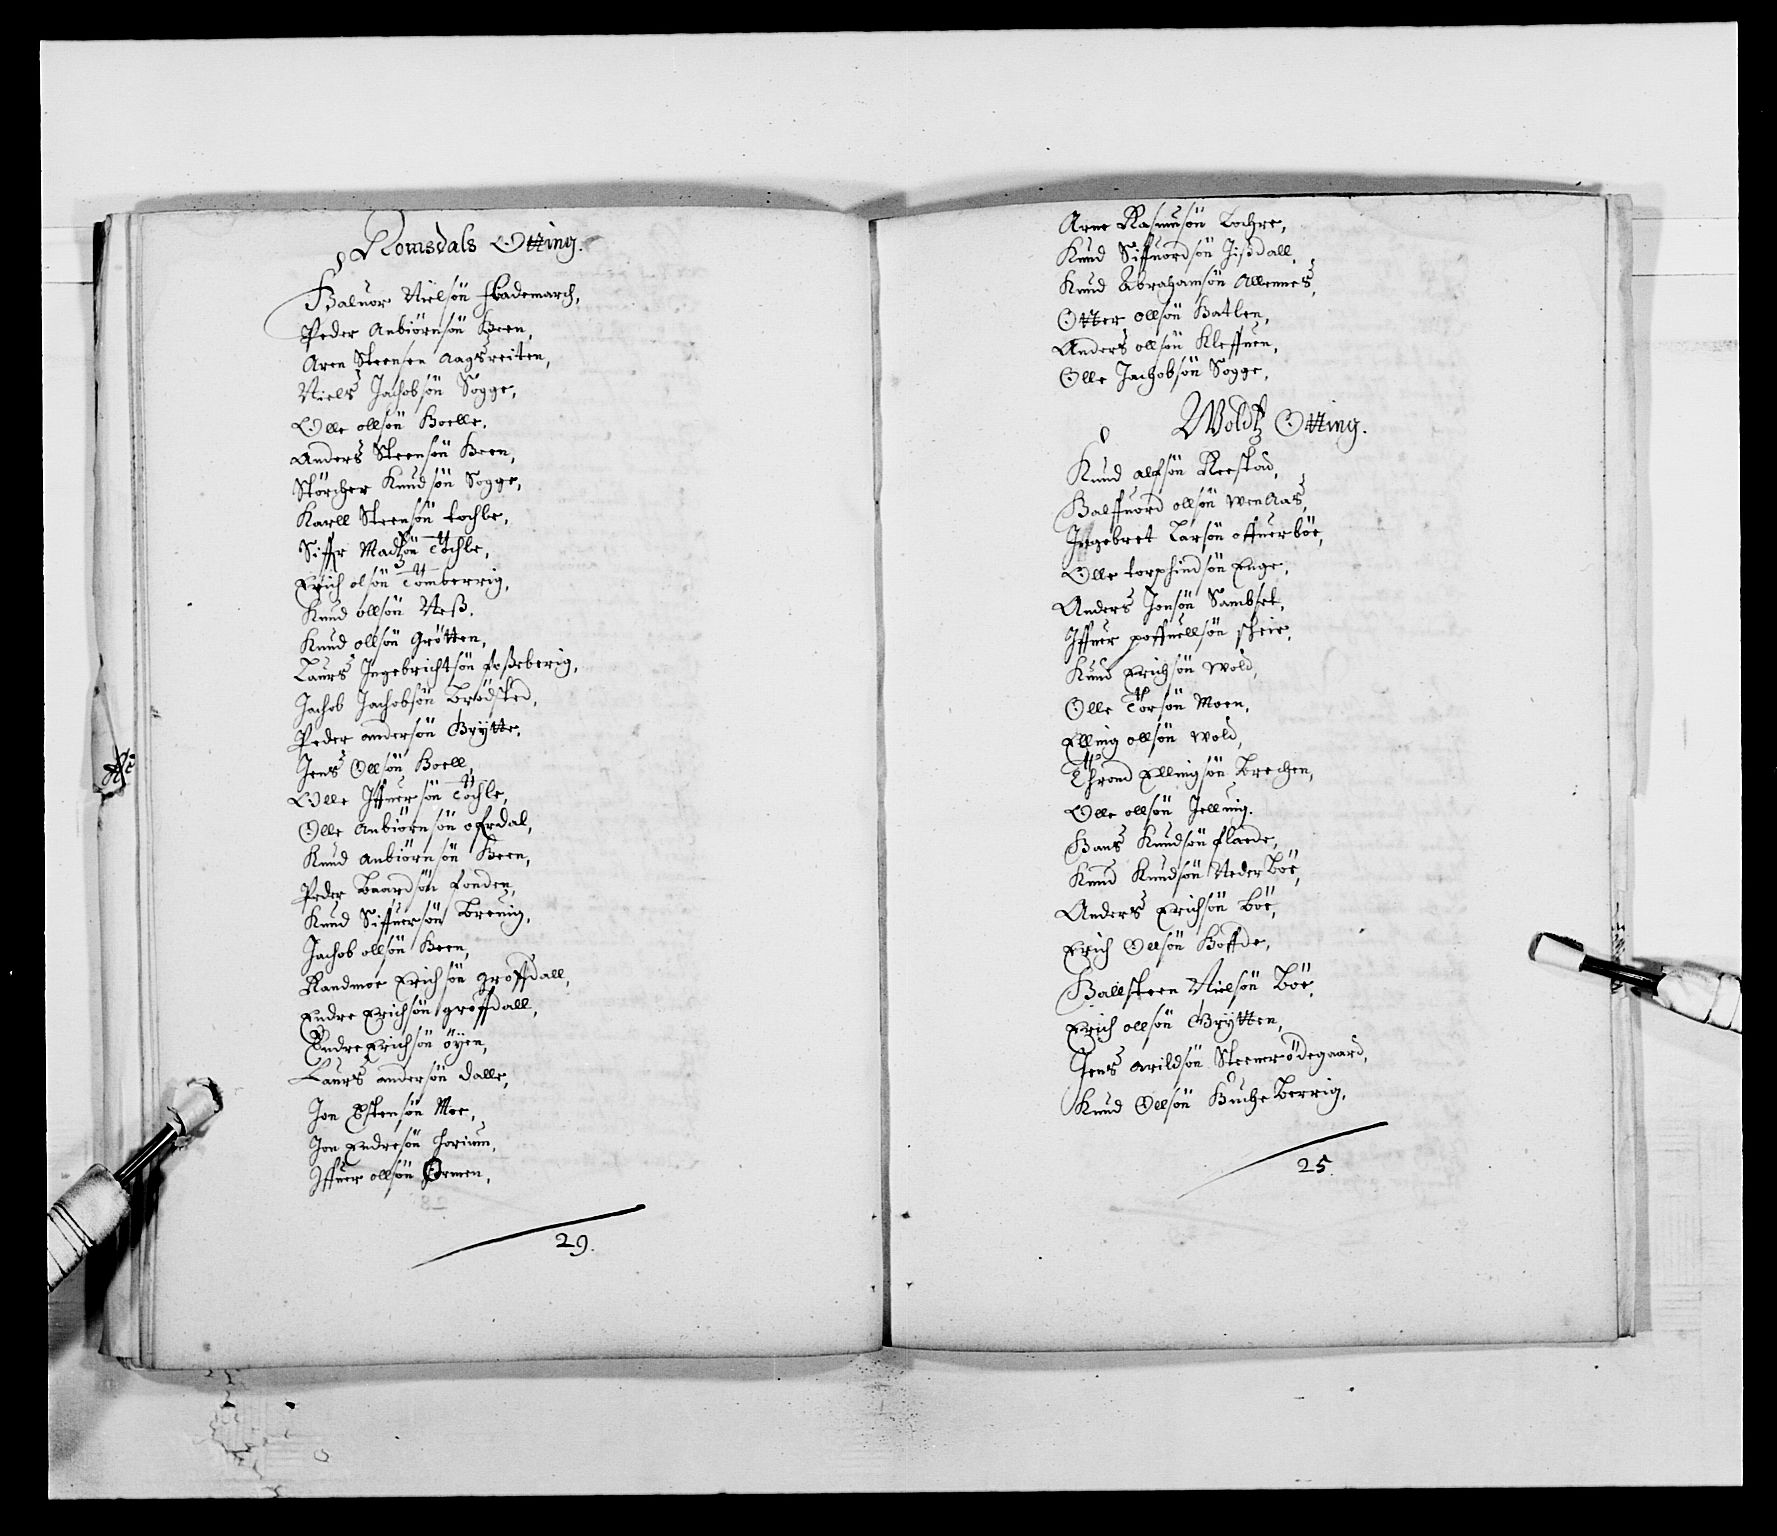 Romsdals Otting.
Haluor Nielsön Hademarch,
Peder Anbiörnsön Heen,
Aren Steensen Aagsreiten,
Niels Jachobsön Sogge,
Olle ollsön Hoelle,
Anders Steensön Heen,
Störcher Knudsön Sogge,
Karll Steensön tochle,
Siffr Madtzön Töchle,
Erich olsön Tömberrig,
Knud ollsön Neß,
Knud ollsön Grötten,
Laurs Ingebrichtsön foßeberig,
Jachob Jachobsön Brödsted,
Peder andersön Grytte,
Jens Ollsön Hoell,
Olle Iffuersön Töchle,
Olle Anbiörnsön oferdal,
Knud anbiörnsön Heen,
Peder Baardsön fonden,
Knud Siffuersön Breuig,
Jachob ollsön Heen,
Randmoe Erichsön groffdall,
Endre Erichsön groffdall,
Endre Erichsön öyen,
Laurs andersön dalle,
Jon Estensön Moe,
Jon Endresön horium,
Iffuer ollsön Ormen,
29.
Arne Rasmusön Lochre,
Knud Siffuordsön Jißdall,
Knud Abrahamsön Allennes,
Otter ollsön Hatlen,
Anders ollsön Kleffuen,
Olle Jachobsön Sogge,
Woldtz Otting.
Knud alfsön Reestad,
Halffuord ollsön wenAas,
Ingebret Larsön offuerböe,
Olle torphindsön Enge,
Anders Jonsön Sambset,
Iffuer poffuellsön scheie,
Knud Erichsön wold,
Olle Torsön Moen,
Elling ollsön wold,
Thrond Ellingsön Brechen,
Olle ollsön Jelluig.
Hans Knudsön flaede,
Knud Knudsön Nederböe,
Anders Erichsön böe,
Erich Ollsön Hoffde,
Hallsteen Nielsön Böe,
Erich ollsön Grytten,
Jens Arildsön Steenerödegaard,
Knud Ollsön HucheBerrig,
25.